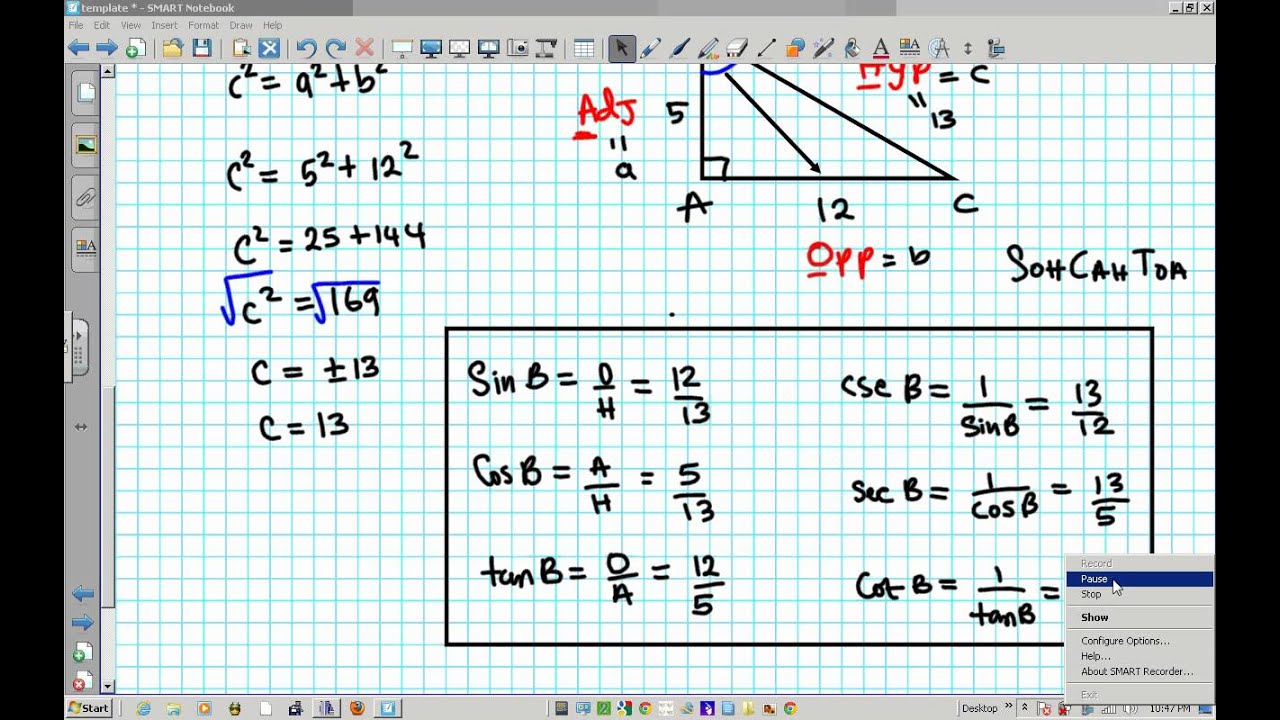 template * - SMART Notebook
File Edit View Insert Format Draw Help
c² = a² + b²
c² = 5² + 12²
c² = 25 + 144
√c² = √169
c = ± 13
c = 13
Hyp = c
"
13
Adj 5
"
a
A 12 C
Opp = b
SOHCAHTOA
Sin B = O/H = 12/13
csc B = 1/sinB = 13/12
Cos B = A/H = 5/13
sec B = 1/cosB = 13/5
tan B = O/A = 12/5
Cot B = 1/tanB =
Record
Pause
Stop
Show
Configure Options...
Help...
About SMART Recorder...
Exit
Start
Desktop » 10:47 PM